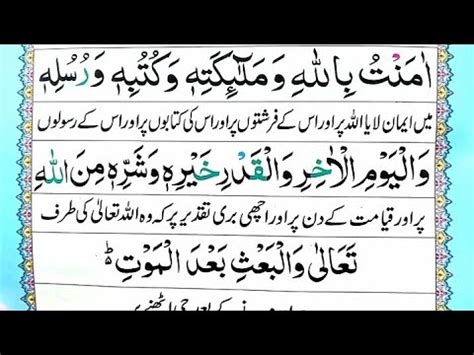 اٰمَنْتُ بِاللّٰهِ وَمَلٰٓئِكَتِهٖ وَكُتُبِهٖ وَرُسُلِهٖ
میں ایمان لایا اللہ پر اور اس کے فرشتوں پر اور اس کی کتابوں پر اور اس کے رسولوں
وَالْيَوْمِ الْاٰخِرِ وَالْقَدْرِ خَيْرِهٖ وَشَرِّهٖ مِنَ اللّٰهِ
پر اور قیامت کے دن پر اور اچھی بری تقدیر پر کہ وہ اللہ تعالیٰ کی طرف
تَعَالٰى وَالْبَعْثِ بَعْدَ الْمَوْتِ ؕ
کے بعد جی اٹھنے پر